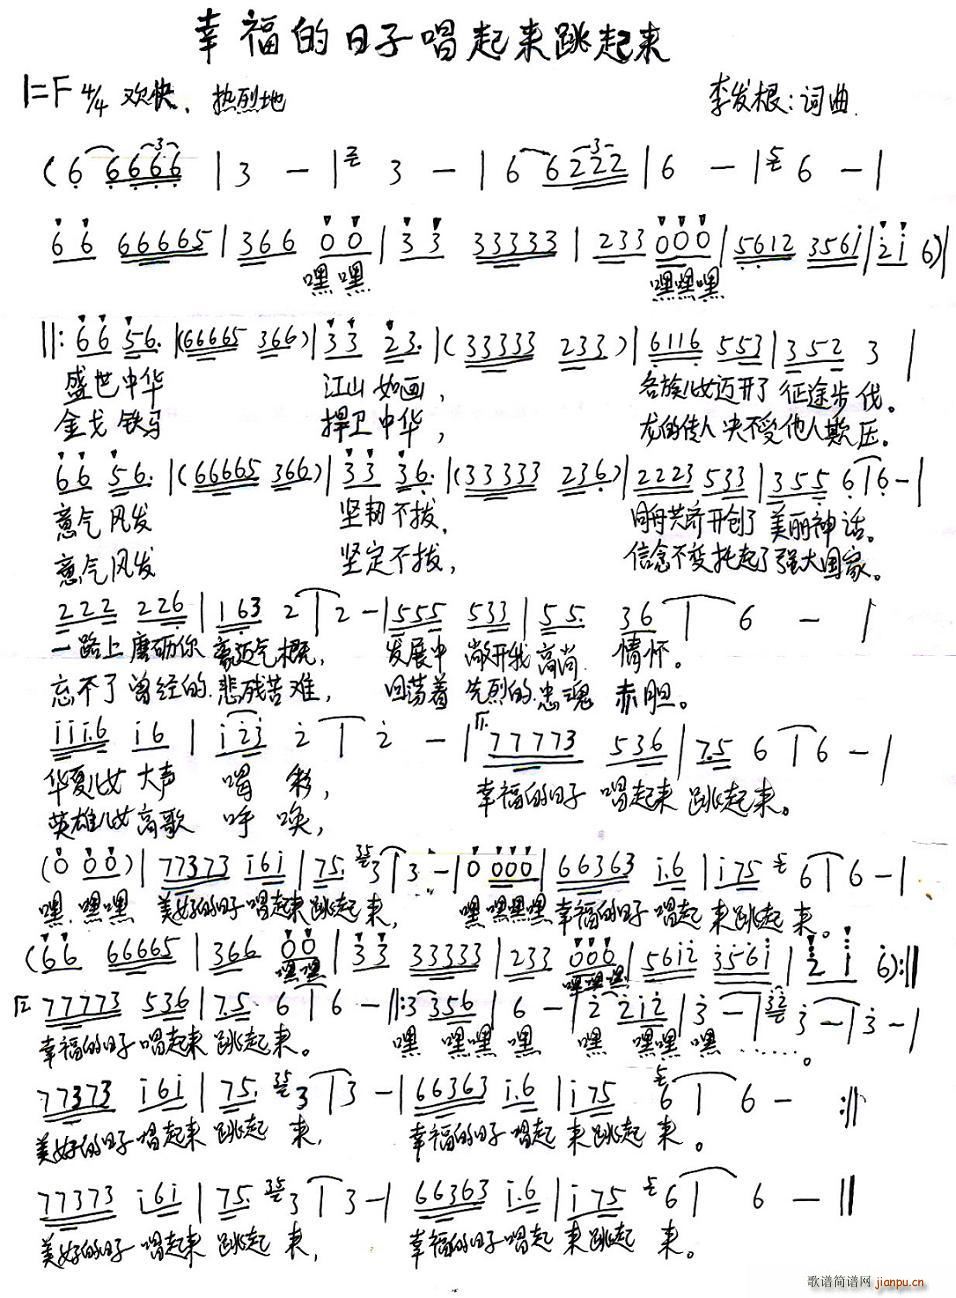 幸福的日子唱起来跳起来
1=F 4/4 欢快、热烈地 李发根:词曲
(6 6666 | 3 - | 3 - | 6 6222 | 6 - | 6 - |
66 66665 | 366 00 | 33 33333 | 233 000 | 5612 3561 | 21 6) |
嘿嘿 嘿嘿嘿
||: 66 56. | (66665 366) | 33 23. | (33333 233) | 6116 553 | 352 3 |
盛世中华 江山如画, 各族儿女迈开了 征途步伐。
金戈铁马 捍卫中华, 龙的传人 决不受他人欺压。
66 56. | (66665 366) | 33 36. | (33333 236) | 2223 533 | 355 6 | 6 - |
意气风发 坚韧不拔, 同舟共济开创了 美丽神话。
意气风发 坚定不拔, 信念不变托起了强大国家。
222 226 | 163 2 | 2 - | 555 533 | 55. 36 | 6 - |
一路上磨砺你 豪迈气概, 发展中 敞开我高尚 情怀。
忘不了曾经的悲残苦难, 回荡着 先烈的忠魂 赤胆。
111.6 16 | 123 2 | 2 - | 77773 536 | 7.5 6 | 6 - |
华夏儿女 大声 喝 彩, 幸福的日子 唱起来 跳起来。
英雄儿女高歌 呼 唤,
(0 00) | 77373 161 | 75. 3 | 3 - | 0 000 | 66363 1.6 | 175 6 | 6 - |
嘿.嘿嘿 美好的日子 唱起来跳起来, 嘿 嘿嘿嘿 幸福的日子 唱起 来跳起 来。
(66 66665 | 366 00 | 33 33333 | 233 000 | 5612 3561 | 21 6) :||
嘿嘿 嘿嘿嘿
77773 536 | 75. 6 | 6 - ||: 3 356 | 6 - | 2 212 | 3 - | 3 - | 3 - |
幸福的日子 唱起来 跳起来。 嘿 嘿嘿 嘿 嘿 嘿嘿 嘿 ……。
77373 161 | 75. 3 | 3 - | 66363 1.6 | 175 6 | 6 - :||
美好的日子 唱起来 跳起 来, 幸福的日子 唱起 来跳起 来。
77373 161 | 75. 3 | 3 - | 66363 1.6 | 175 6 | 6 - ||
美好的日子 唱起来 跳起 来, 幸福的日子唱起 来跳起 来。
歌谱简谱网 jianpu.cn